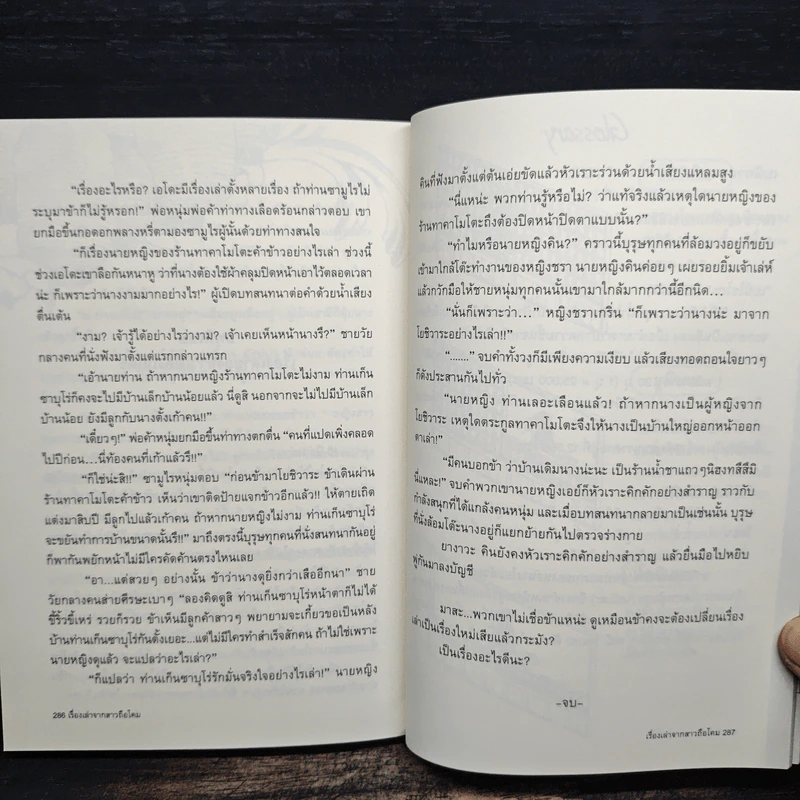 "เรื่องอะไรหรือ? เอโดะมีเรื่องเล่าตั้งหลายเรื่อง ถ้าท่านซามูไรไม่
ระบุมาข้าก็ไม่รู้หรอก!" พ่อหนุ่มพ่อค้าท่าทางเลือดร้อนกล่าวตอบ เขา
ยกมือขึ้นกอดอกพลางหรี่ตามองซามูไรผู้นั้นด้วยท่าทางสนใจ
"ก็เรื่องนายหญิงของร้านทาคาโมโตะค้าข้าวอย่างไรเล่า ช่วงนี้
ช่วงเอโดะเขาลือกันหนาหู ว่าที่นางต้องใช้ผ้าคลุมปิดหน้าเอาไว้ตลอดเวลา
น่ะ ก็เพราะว่านางงามมากอย่างไร!" ผู้เปิดบทสนทนาต่อคำด้วยน้ำเสียง
ตื่นเต้น
"งาม? เจ้ารู้ได้อย่างไรว่างาม? เจ้าเคยเห็นหน้านางรึ?" ชายวัย
กลางคนที่นั่งฟังมาตั้งแต่แรกกล่าวแทรก
"เอ้านายท่าน ถ้าหากนายหญิงร้านทาคาโมโตะไม่งาม ท่านเก็น
ซาบุโร่ก็คงจะไปมีบ้านเล็กบ้านน้อยแล้ว นี่ดูสิ นอกจากจะไม่ไปมีบ้านเล็ก
บ้านน้อย ยังมีลูกกับนางตั้งเก้าคน!!"
"เดี๋ยวๆ!" พ่อค้าหนุ่มยกมือขึ้นทำท่าทางตกตื่น "คนที่แปดเพิ่งคลอด
ไปปีก่อน...นี่ท้องคนที่เก้าแล้วรึ!!"
"ก็ใช่น่ะสิ!!" ซามูไรหนุ่มตอบ "ก่อนข้ามาโยชิวาระ ข้าเดินผ่าน
ร้านทาคาโมโตะค้าข้าว เห็นว่าเขาติดป้ายแจกข้าวอีกแล้ว!! ให้ตายเถิด
แต่งมาสิบปี มีลูกไปแล้วเก้าคน ถ้าหากนายหญิงไม่งาม ท่านเก็นซาบุโร่
จะขยันทำการบ้านขนาดนั้นรึ!!" มาถึงตรงนี้บุรุษทุกคนที่นั่งสนทนากันอยู่
ก็พากันพยักหน้าไม่มีใครคัดค้านตรงไหนเลย
"อา...แต่สวยๆ อย่างนั้น ข้าว่านางดุยิ่งกว่าเสืออีกนา" ชาย
วัยกลางคนส่ายศีรษะเบาๆ "ลองคิดดูสิ ท่านเก็นซาบุโร่หน้าตาก็ไม่ได้
ขี้ริ้วขี้เหร่ รวยก็รวย ข้าเห็นมีลูกค้าสาวๆ พยายามจะเกี้ยวขอเป็นหลัง
บ้านท่านเก็นซาบุโร่กันตั้งเยอะ...แต่ไม่มีใครทำสำเร็จสักคน ถ้าไม่ใช่เพราะ
นายหญิงดุแล้ว จะแปลว่าอะไรเล่า?"
"ก็แปลว่า ท่านเก็นซาบุโร่รักมั่นจริงใจอย่างไรเล่า!" นายหญิง
286 เรื่องเล่าจากสาวถือโคม
คินที่ฟังมาตั้งแต่ต้นเอ่ยขัดแล้วหัวเราะร่วนด้วยน้ำเสียงแหลมสูง
"นี่แหน่ะ พวกท่านรู้หรือไม่? ว่าแท้จริงแล้วเหตุใดนายหญิงของ
ร้านทาคาโมโตะถึงต้องปิดหน้าปิดตาแบบนั้น?"
"ทำไมหรือนายหญิงคิน?" คราวนี้บุรุษทุกคนที่ล้อมวงอยู่ก็ขยับ
เข้ามาใกล้โต๊ะทำงานของหญิงชรา นายหญิงคินค่อยๆ เผยรอยยิ้มเจ้าเล่ห์
แล้วกวักมือให้ชายหนุ่มทุกคนนั้นเข้ามาใกล้มากกว่านี้อีกนิด...
"นั่นก็เพราะว่า..." หญิงชราเกริ่น "ก็เพราะว่านางน่ะ มาจาก
โยชิวาระอย่างไรเล่า!!"
"......." จบคำทั้งวงก็มีเพียงความเงียบ แล้วเสียงทอดถอนใจยาวๆ
ก็ดังประสานกันไปทั่ว
"นายหญิง ท่านเลอะเลือนแล้ว! ถ้าหากนางเป็นผู้หญิงจาก
โยชิวาระ เหตุใดตระกูลทาคาโมโตะจึงให้นางเป็นบ้านใหญ่ออกหน้าออก
ตาเล่า!"
"มีคนบอกข้า ว่าบ้านเดิมนางน่ะนะ เป็นร้านน้ำชาแถวๆ นิฮงทสึสึมิ
นี่แหละ!" จบคำพวกเขานายหญิงเอย์ก็หัวเราะคิกคักอย่างสำราญ ราวกับ
กำลังสนุกที่ได้แกล้งคนหนุ่ม และเมื่อบทสนทนากลายมาเป็นเช่นนั้น บุรุษ
ที่นั่งล้อมโต๊ะนางอยู่ก็แยกย้ายกันไปตรวจร่างกาย
ยางาวะ คินยังคงหัวเราะคิกคักอย่างสำราญ แล้วยื่นมือไปหยิบ
พู่กันมาลงบัญชี
มาสะ...พวกเขาไม่เชื่อข้าแหน่ะ ดูเหมือนข้าคงจะต้องเปลี่ยนเรื่อง
เล่าเป็นเรื่องใหม่เสียแล้วกระมัง?
เป็นเรื่องอะไรดีนะ?
-จบ-
เรื่องเล่าจากสาวถือโคม 287